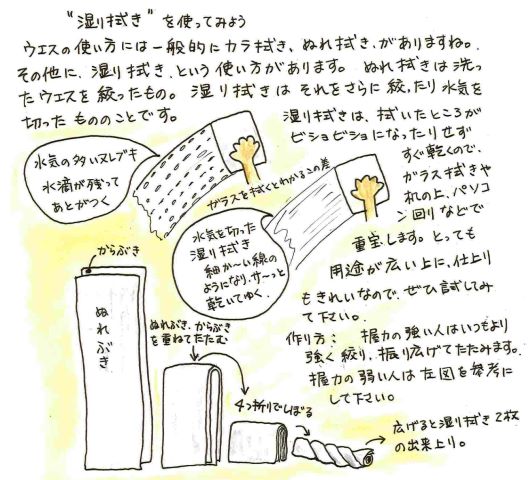 "湿り拭き"を使ってみよう
ウエスの使い方には一般的にカラ拭き、ぬれ拭き、がありますね。
その他に、湿り拭き、という使い方があります。 ぬれ拭きは洗っ
たウエスを絞ったもの。 湿り拭きは それをさらに絞ったり水気を
切った もののことです。
湿り拭きは、拭いたところが
ビショビショになったりせず
すぐ乾くので、
ガラス拭きや
机の上、パソコ
ン回りなどで
重宝します。とっても
用途が広い上に、仕上り
もきれいなので、ぜひ試してみ
て下さい。
水気の多いヌレブキ
水滴が残って
あとがつく
ガラスを拭くとわかるこの差
水気を切った
湿り拭き
細か〜い線の
ようになり、サ〜っと
乾いてゆく。
からぶき
ぬれぶき
ぬれぶき、からぶき
を重ねてたたむ
4つ折りでしぼる
広げると湿り拭き2枚
の出来上り。
作り方: 握力の強い人はいつもより
強く絞り、振り広げてたたみます。
握力の弱い人は左図を参考に
して下さい。